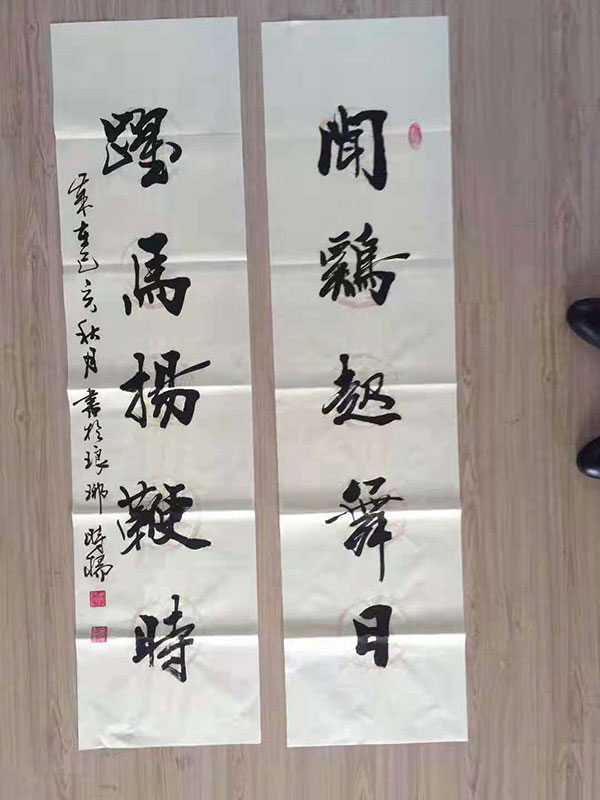 聞鷄起舞日
躍馬揚鞭時
歲在己亥秋月書於琅琊時